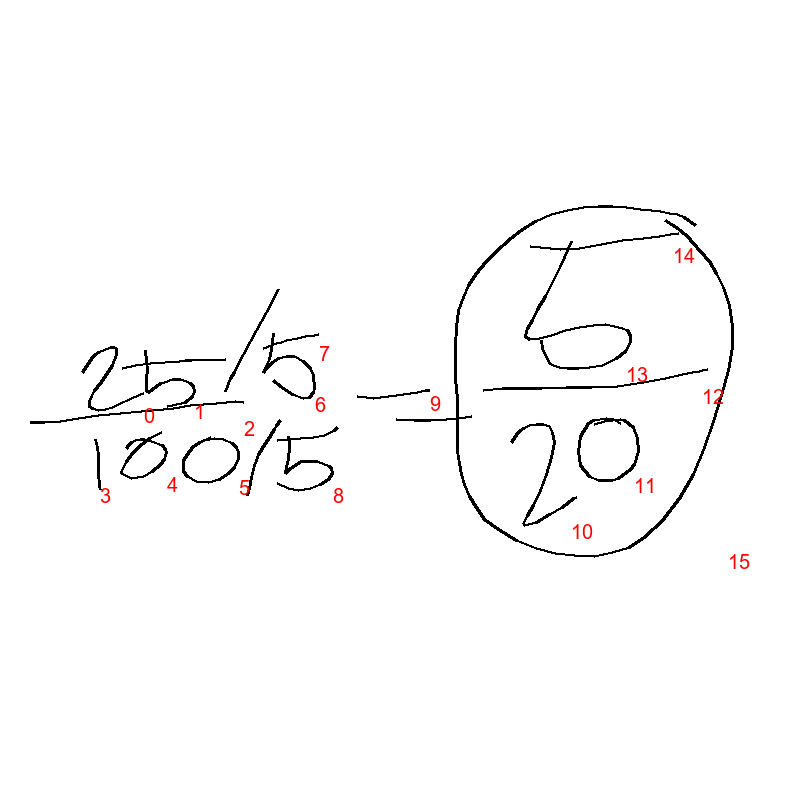 25/5
100/5
=
5
20
0 1 2 3 4 5 6 7 8 9 10 11 12 13 14 15